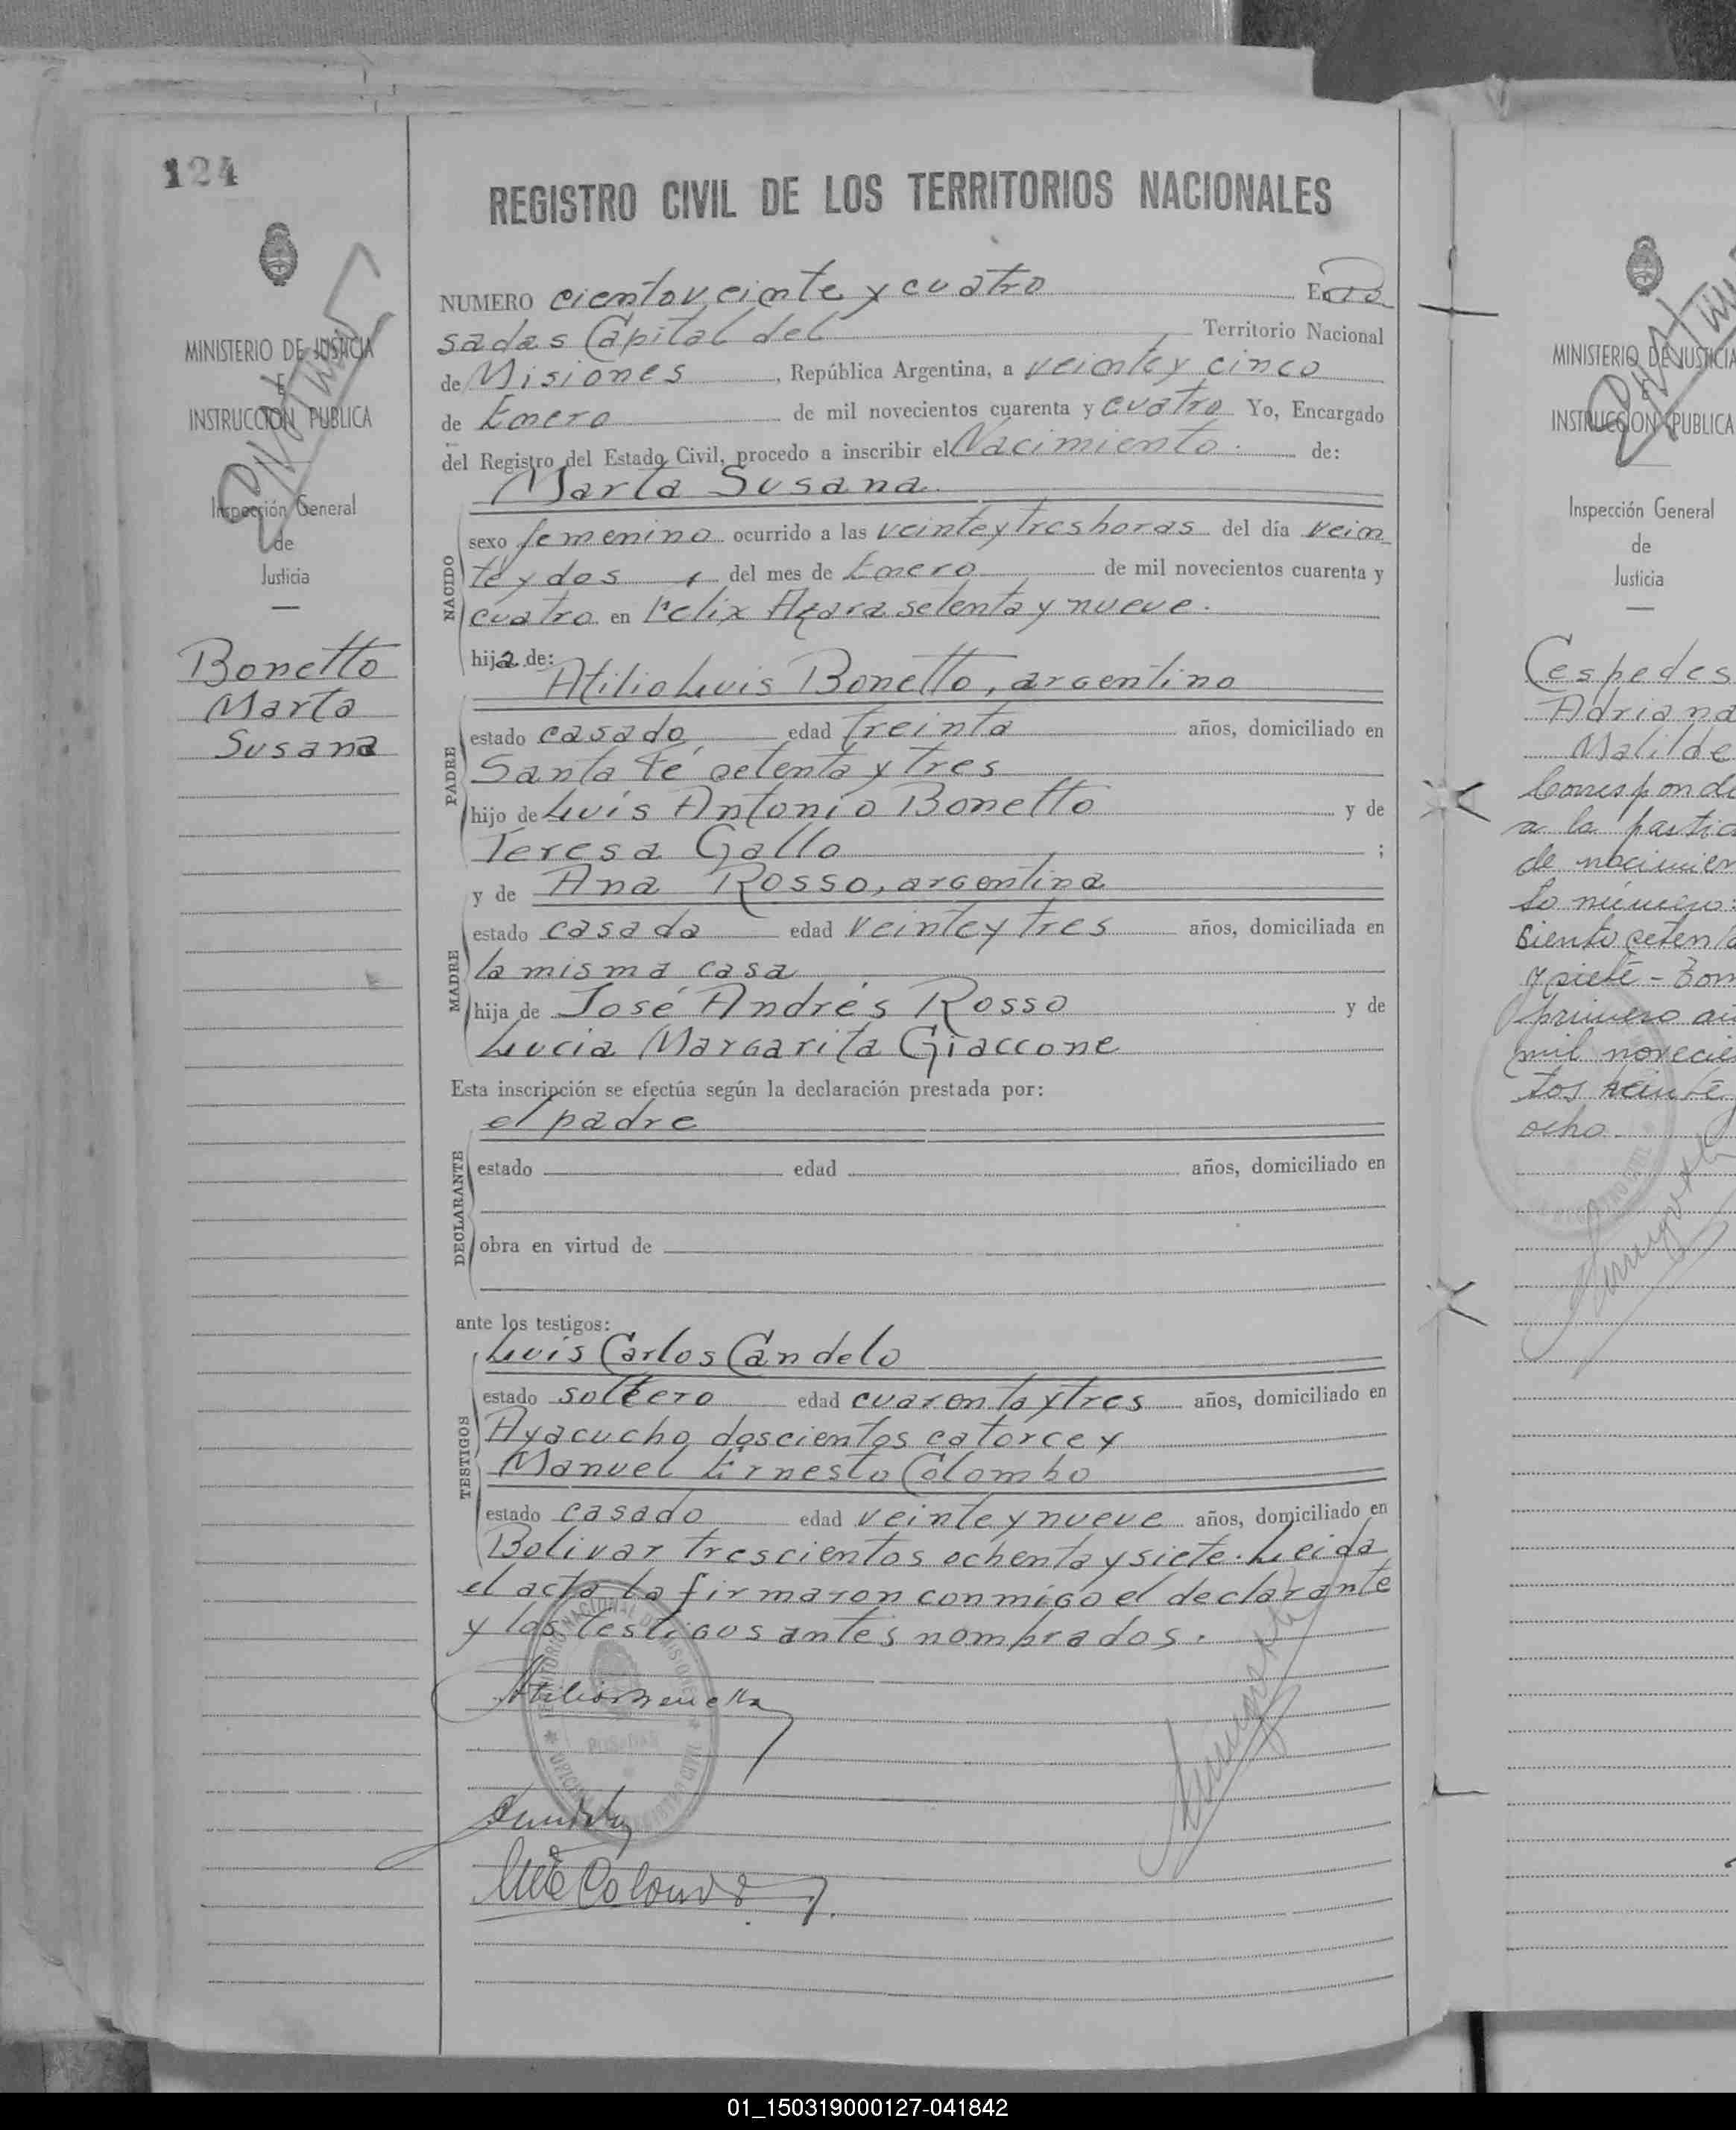 124
REGISTRO CIVIL DE LOS TERRITORIOS NACIONALES
NUMERO cientoveinte y cuatro En Po
sadas Capital del Territorio Nacional
de Misiones, República Argentina, a veinte y cinco
de Enero de mil novecientos cuarenta y cuatro Yo, Encargado
del Registro del Estado Civil, procedo a inscribir el Nacimiento. de:
Marta Susana.
NACIDO
sexo femenino ocurrido a las veinte y tres horas del día vein
te y dos del mes de Enero de mil novecientos cuarenta y
cuatro en Felix Azara setenta y nueve.
hija de:
Atilio Luis Bonetto, argentino
PADRE
estado casado, edad treinta años, domiciliado en
Santa Fé setenta y tres
hijo de Luis Antonio Bonetto y de
Teresa Gallo ;
y de Ana Rosso, argentina
MADRE
estado casada edad veinte y tres años, domiciliada en
la misma casa
hija de José Andrés Rosso y de
Lucia Margarita Giaccone
Esta inscripción se efectúa según la declaración prestada por:
el padre
DECLARANTE
estado edad años, domiciliado en
obra en virtud de
ante los testigos:
Luis Carlos Candelo
TESTIGOS
estado soltero edad cuarenta y tres años, domiciliado en
Ayacucho doscientos catorce y
Manuel Ernesto Colombo
estado casado edad veinte y nueve años, domiciliado en
Bolivar trescientos ochenta y siete. Leida
el acta la firmaron conmigo el declarante
y los testigos antes nombrados.
TERRITORIO NACIONAL DE MISIONES
POSADAS
MINISTERIO DE JUSTICIA
E
INSTRUCCION PUBLICA
Inspección General
de
Justicia
Bonetto
Marta
Susana
MINISTERIO DE JUSTICIA
E
INSTRUCCION PUBLICA
Inspección General
de
Justicia
Cespedes
Adriana
Matilde
Corresponde
a la partid
de nacimien
to número:
ciento setenta
y siete - Tom
primero añ
mil novecien
tos treinta
ocho
01_150319000127-041842